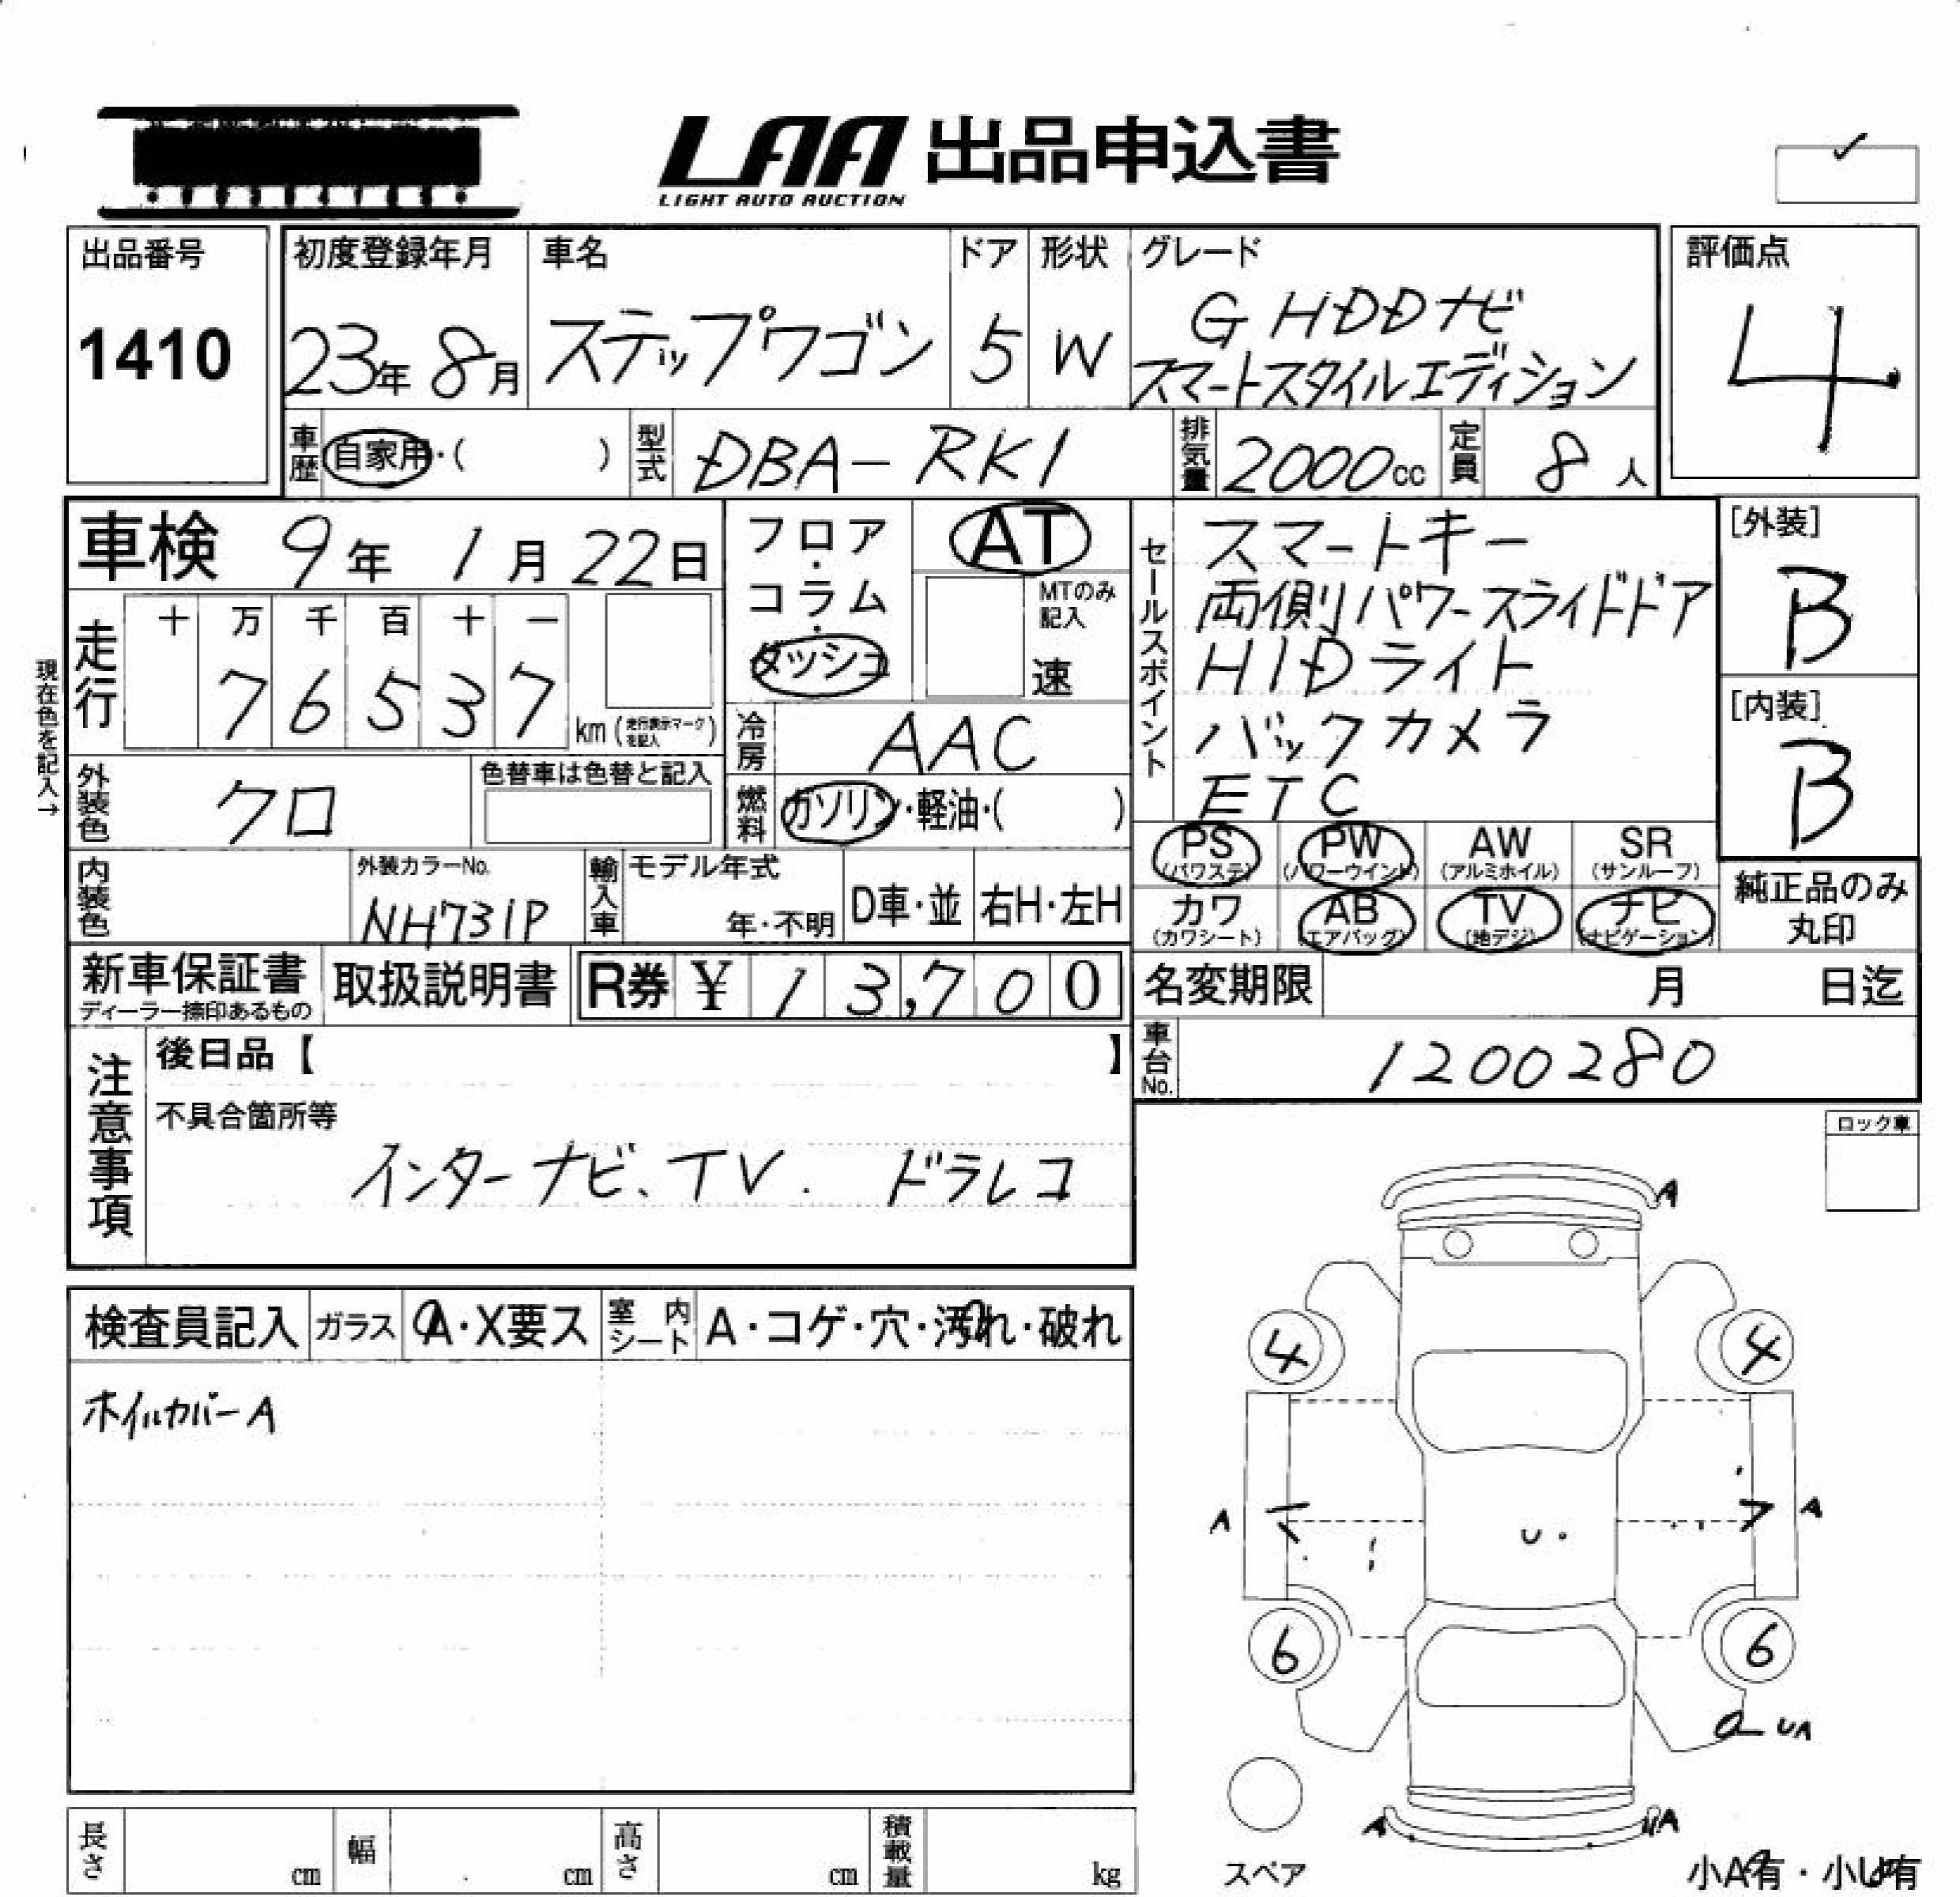 LAA 出品申込書
LIGHT AUTO AUCTION
出品番号
1410
初度登録年月
23年 8月
車名
ステップワゴン
ドア
5
形状
W
グレード
G HDDナビ
スマートスタイルエディション
評価点
4
車歴 自家用・( )
型式 DBA-RK1
排気量 2000cc
定員 8人
車検 9年 1月 22日
現在色を記入→
走行
十 万 千 百 十 一
7 6 5 3 7
km (走行表示マークを記入)
フロア・
コラム・
ダッシュ
AT
MTのみ
記入
速
冷房 AAC
燃料 ガソリン・軽油・( )
セールスポイント
スマートキー
両側パワースライドドア
HIDライト
バックカメラ
ETC
[外装]
B
[内装]
B
外装色 クロ
色替車は色替と記入
内装色
外装カラーNo.
NH731P
輸入車
モデル年式
年・不明
D車・並
右H・左H
PS
(パワステ)
PW
(パワーウインド)
AW
(アルミホイル)
SR
(サンルーフ)
カワ
(カワシート)
AB
(エアバッグ)
TV
(地デジ)
ナビ
(ナビゲーション)
純正品のみ
丸印
新車保証書
ディーラー捺印あるもの
取扱説明書
R券 ¥ 13,700
名変期限 月 日迄
車台No. 1200280
注意事項
後日品【 】
不具合箇所等
インターナビ、TV. ドラレコ
ロック車
検査員記入
ガラス
A・X要ス
室内シート
A・コゲ・穴・汚れ・破れ
ホイルカバーA
A
4 4
A A
U
6 6
UA
A UA
スペア
小A有・小U有
長さ cm
幅 cm
高さ cm
積載量 kg